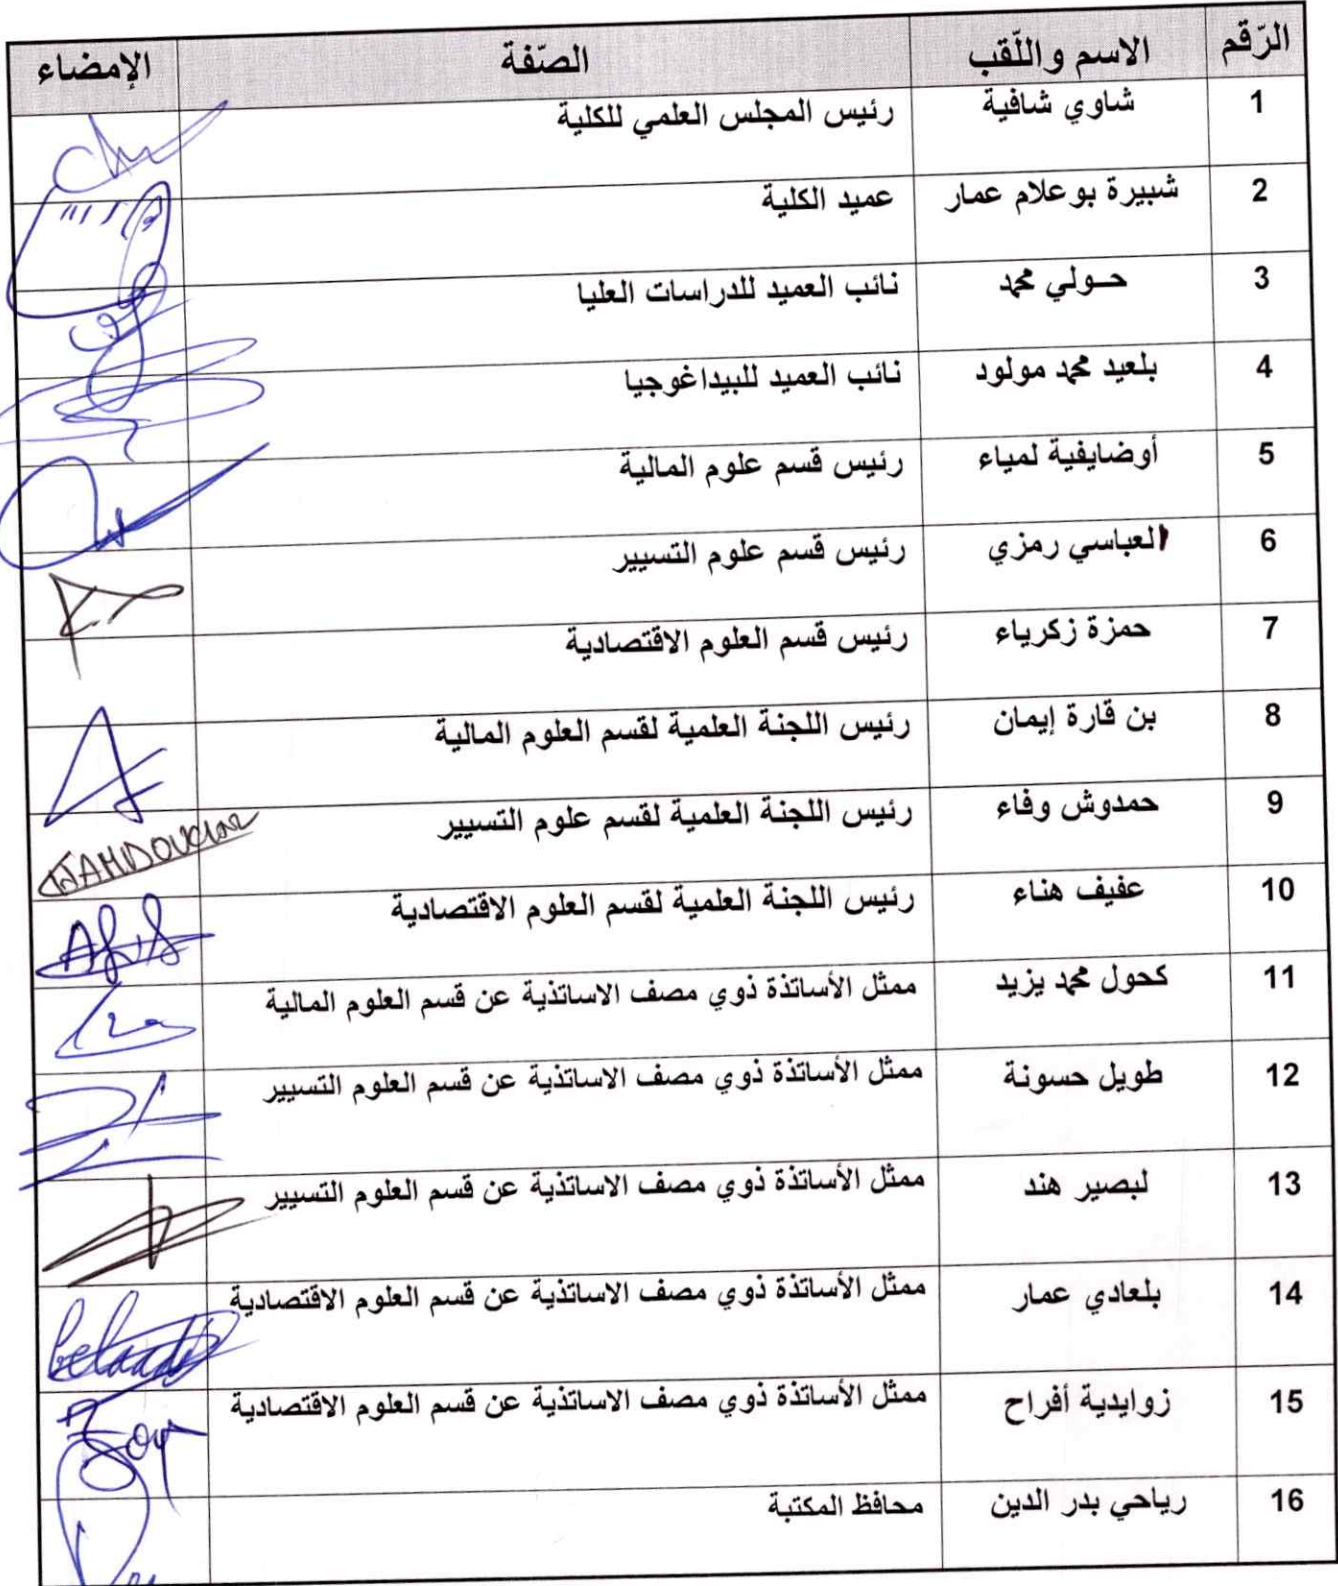 الرّقم الاسم واللّقب الصّفة الإمضاء
1 شاوي شافية رئيس المجلس العلمي للكلية
2 شبيرة بوعلام عمار عميد الكلية
3 حـولي محمد نائب العميد للدراسات العليا
4 بلعيد محمد مولود نائب العميد للبيداغوجيا
5 أوضايفية لمياء رئيس قسم علوم المالية
6 العباسي رمزي رئيس قسم علوم التسيير
7 حمزة زكرياء رئيس قسم العلوم الاقتصادية
8 بن قارة إيمان رئيس اللجنة العلمية لقسم العلوم المالية
9 حمدوش وفاء رئيس اللجنة العلمية لقسم علوم التسيير HAMDOUCHE
10 عفيف هناء رئيس اللجنة العلمية لقسم العلوم الاقتصادية Afif
11 كحول محمد يزيد ممثل الأساتذة ذوي مصف الاساتذية عن قسم العلوم المالية
12 طويل حسونة ممثل الأساتذة ذوي مصف الاساتذية عن قسم العلوم التسيير
13 لبصير هند ممثل الأساتذة ذوي مصف الاساتذية عن قسم العلوم التسيير
14 بلعادي عمار ممثل الأساتذة ذوي مصف الاساتذية عن قسم العلوم الاقتصادية Belaadi
15 زوايدية أفراح ممثل الأساتذة ذوي مصف الاساتذية عن قسم العلوم الاقتصادية
16 رياحي بدر الدين محافظ المكتبة